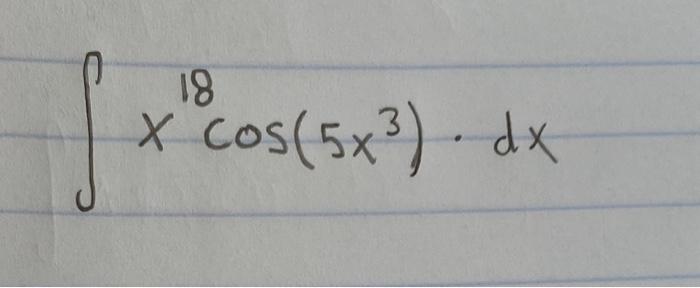 ∫ x¹⁸ cos(5x³) · dx